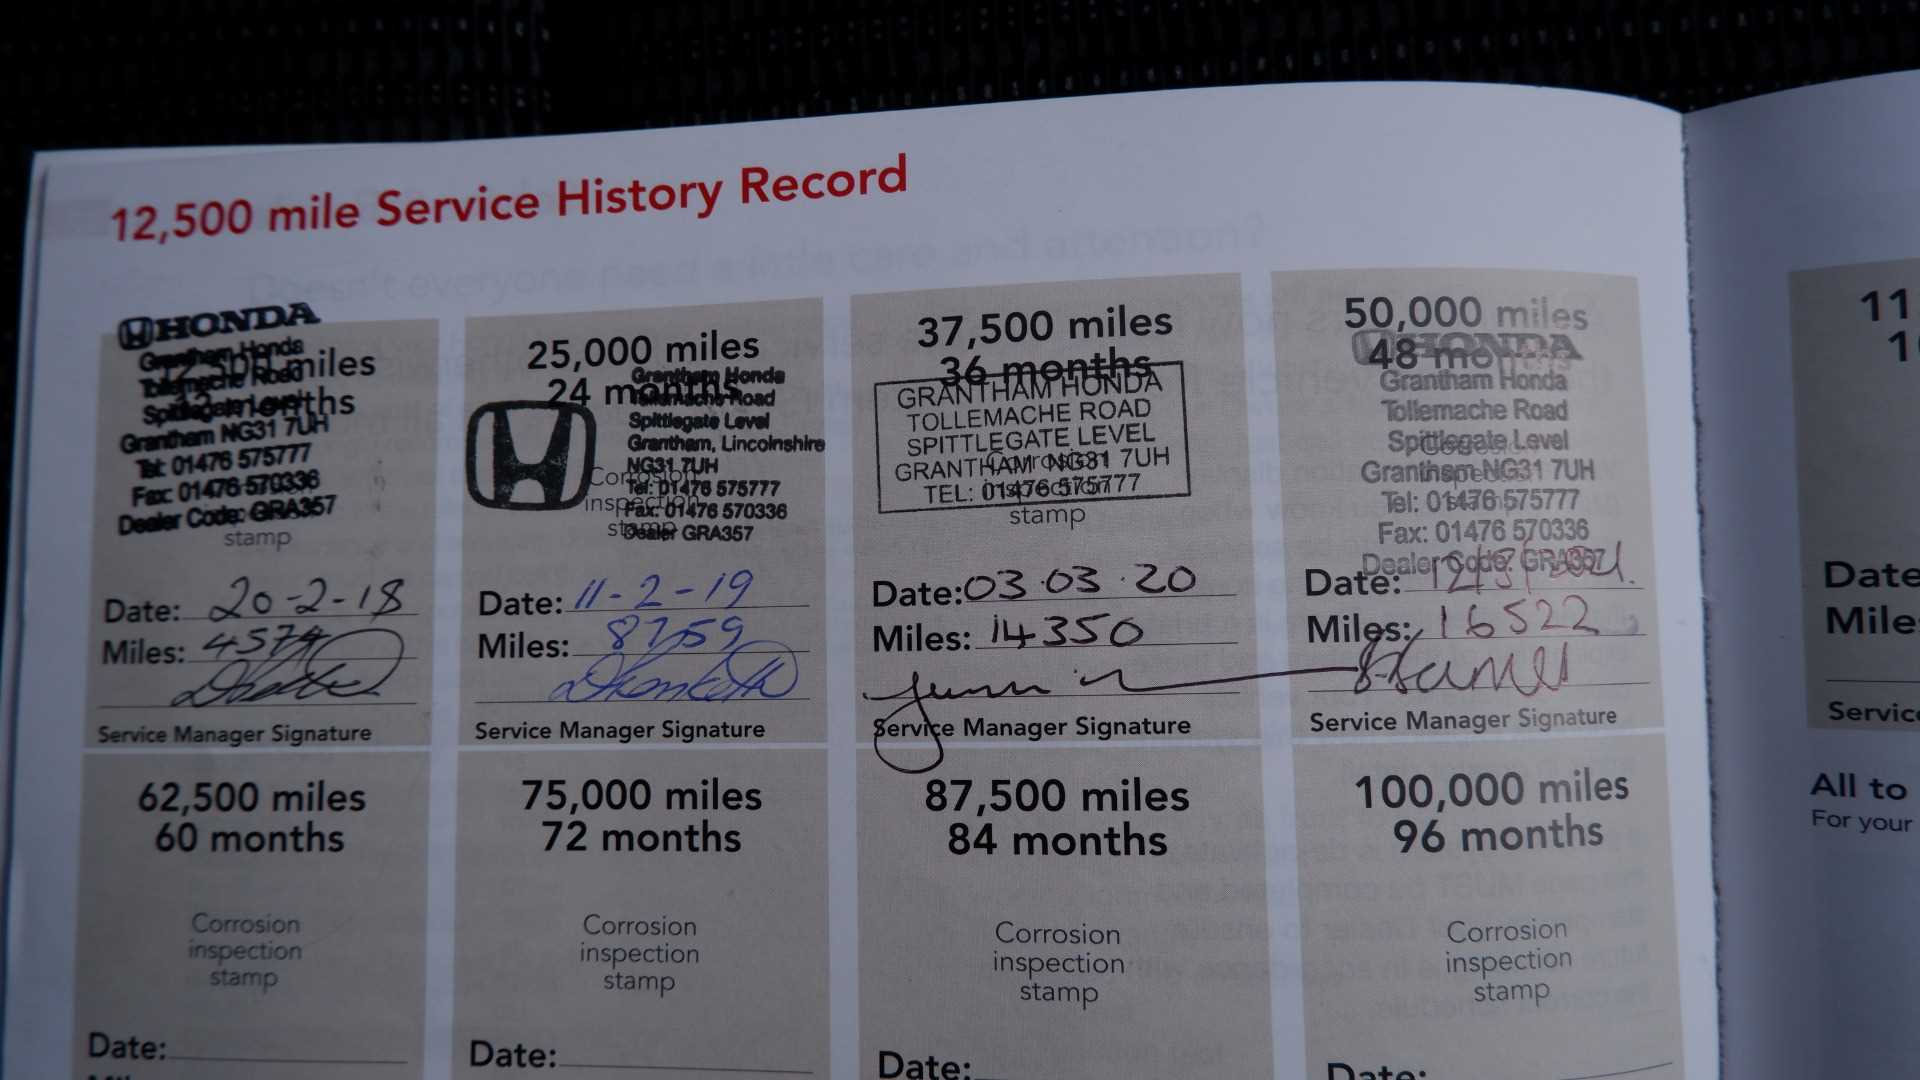 12,500 mile Service History Record
HONDA
Grantham Honda
12,500 miles
Tollemache Road
12 months
Spittlegate Level
Grantham NG31 7UH
Tel: 01476 575777
Fax: 01476 570336
Dealer Code: GRA357
stamp
Date: 20-2-18
Miles: 4574
Service Manager Signature
25,000 miles
24 months
Grantham Honda
Tollemache Road
Spittlegate Level
Grantham, Lincolnshire
NG31 7UH
Corrosion
Tel: 01476 575777
inspection
Fax: 01476 570336
stamp
Dealer GRA357
Date: 11-2-19
Miles: 8759
Service Manager Signature
37,500 miles
36 months
GRANTHAM HONDA
TOLLEMACHE ROAD
SPITTLEGATE LEVEL
GRANTHAM NG31 7UH
Corrosion
TEL: 01476 575777
inspection
stamp
Date: 03.03.20
Miles: 14350
Service Manager Signature
50,000 miles
48 months
HONDA
Grantham Honda
Tollemache Road
Spittlegate Level
Grantham NG31 7UH
Tel: 01476 575777
Fax: 01476 570336
Dealer Code: GRA357
Date:
Miles: 16522
Service Manager Signature
62,500 miles
60 months
Corrosion
inspection
stamp
Date:
75,000 miles
72 months
Corrosion
inspection
stamp
Date:
87,500 miles
84 months
Corrosion
inspection
stamp
Date:
100,000 miles
96 months
Corrosion
inspection
stamp
Date:
11
1
Date
Mile
Servic
All to
For your